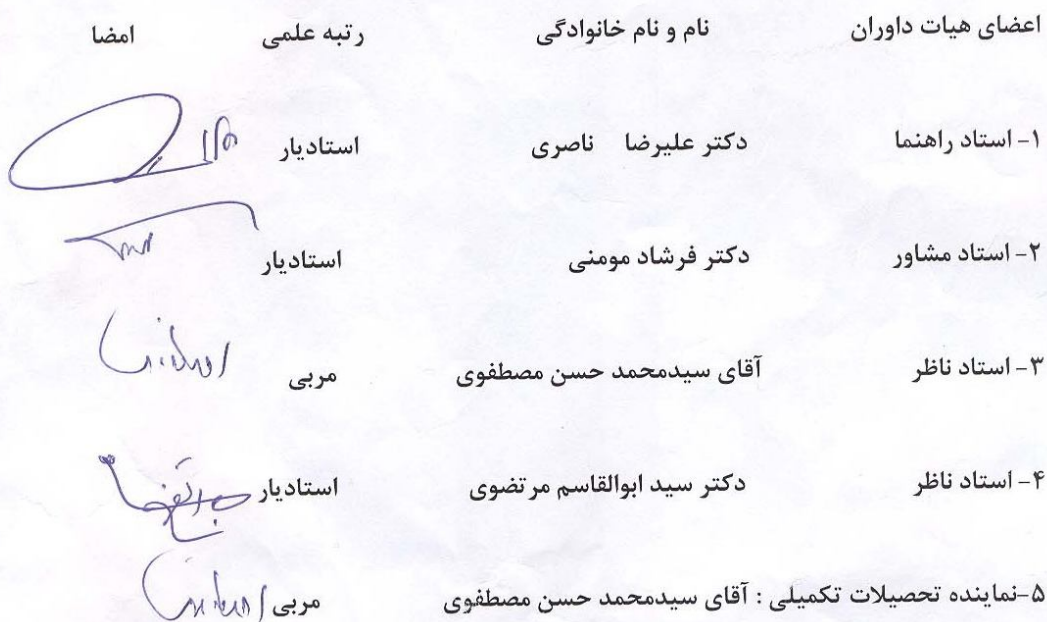 اعضای هیات داوران نام و نام خانوادگی رتبه علمی امضا
۱- استاد راهنما دکتر علیرضا ناصری استادیار
۲- استاد مشاور دکتر فرشاد مومنی استادیار
۳- استاد ناظر آقای سیدمحمد حسن مصطفوی مربی
۴- استاد ناظر دکتر سید ابوالقاسم مرتضوی استادیار
۵-نماینده تحصیلات تکمیلی : آقای سیدمحمد حسن مصطفوی مربی